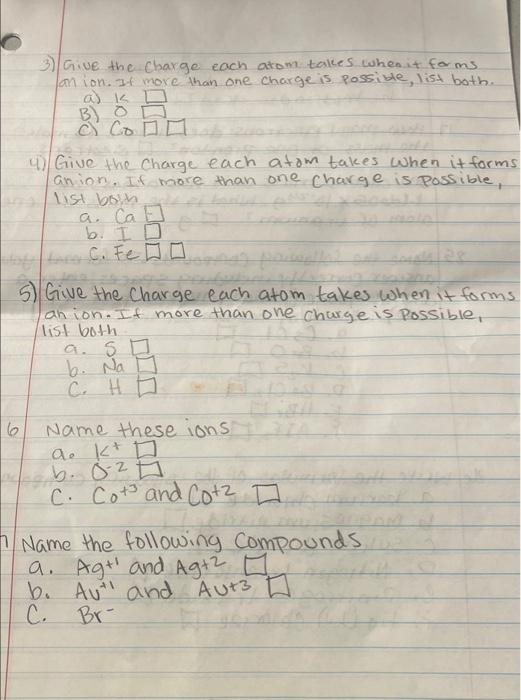 3) Give the charge each atom takes when it forms
an ion. If more than one charge is possible, list both.
a) K
B) O
C) Co
4) Give the charge each atom takes when it forms
an ion. If more than one charge is possible,
list both
a. Ca
b. I
C. Fe
5) Give the Charge each atom takes when it forms
an ion. If more than one charge is possible,
list both.
a. S
b. Na
C. H
6 Name these ions
a. K+
b. O-2
C. Co+3 and Co+2
7 Name the following compounds
a. Ag+1 and Ag+2
b. Au+1 and Au+3
C. Br-